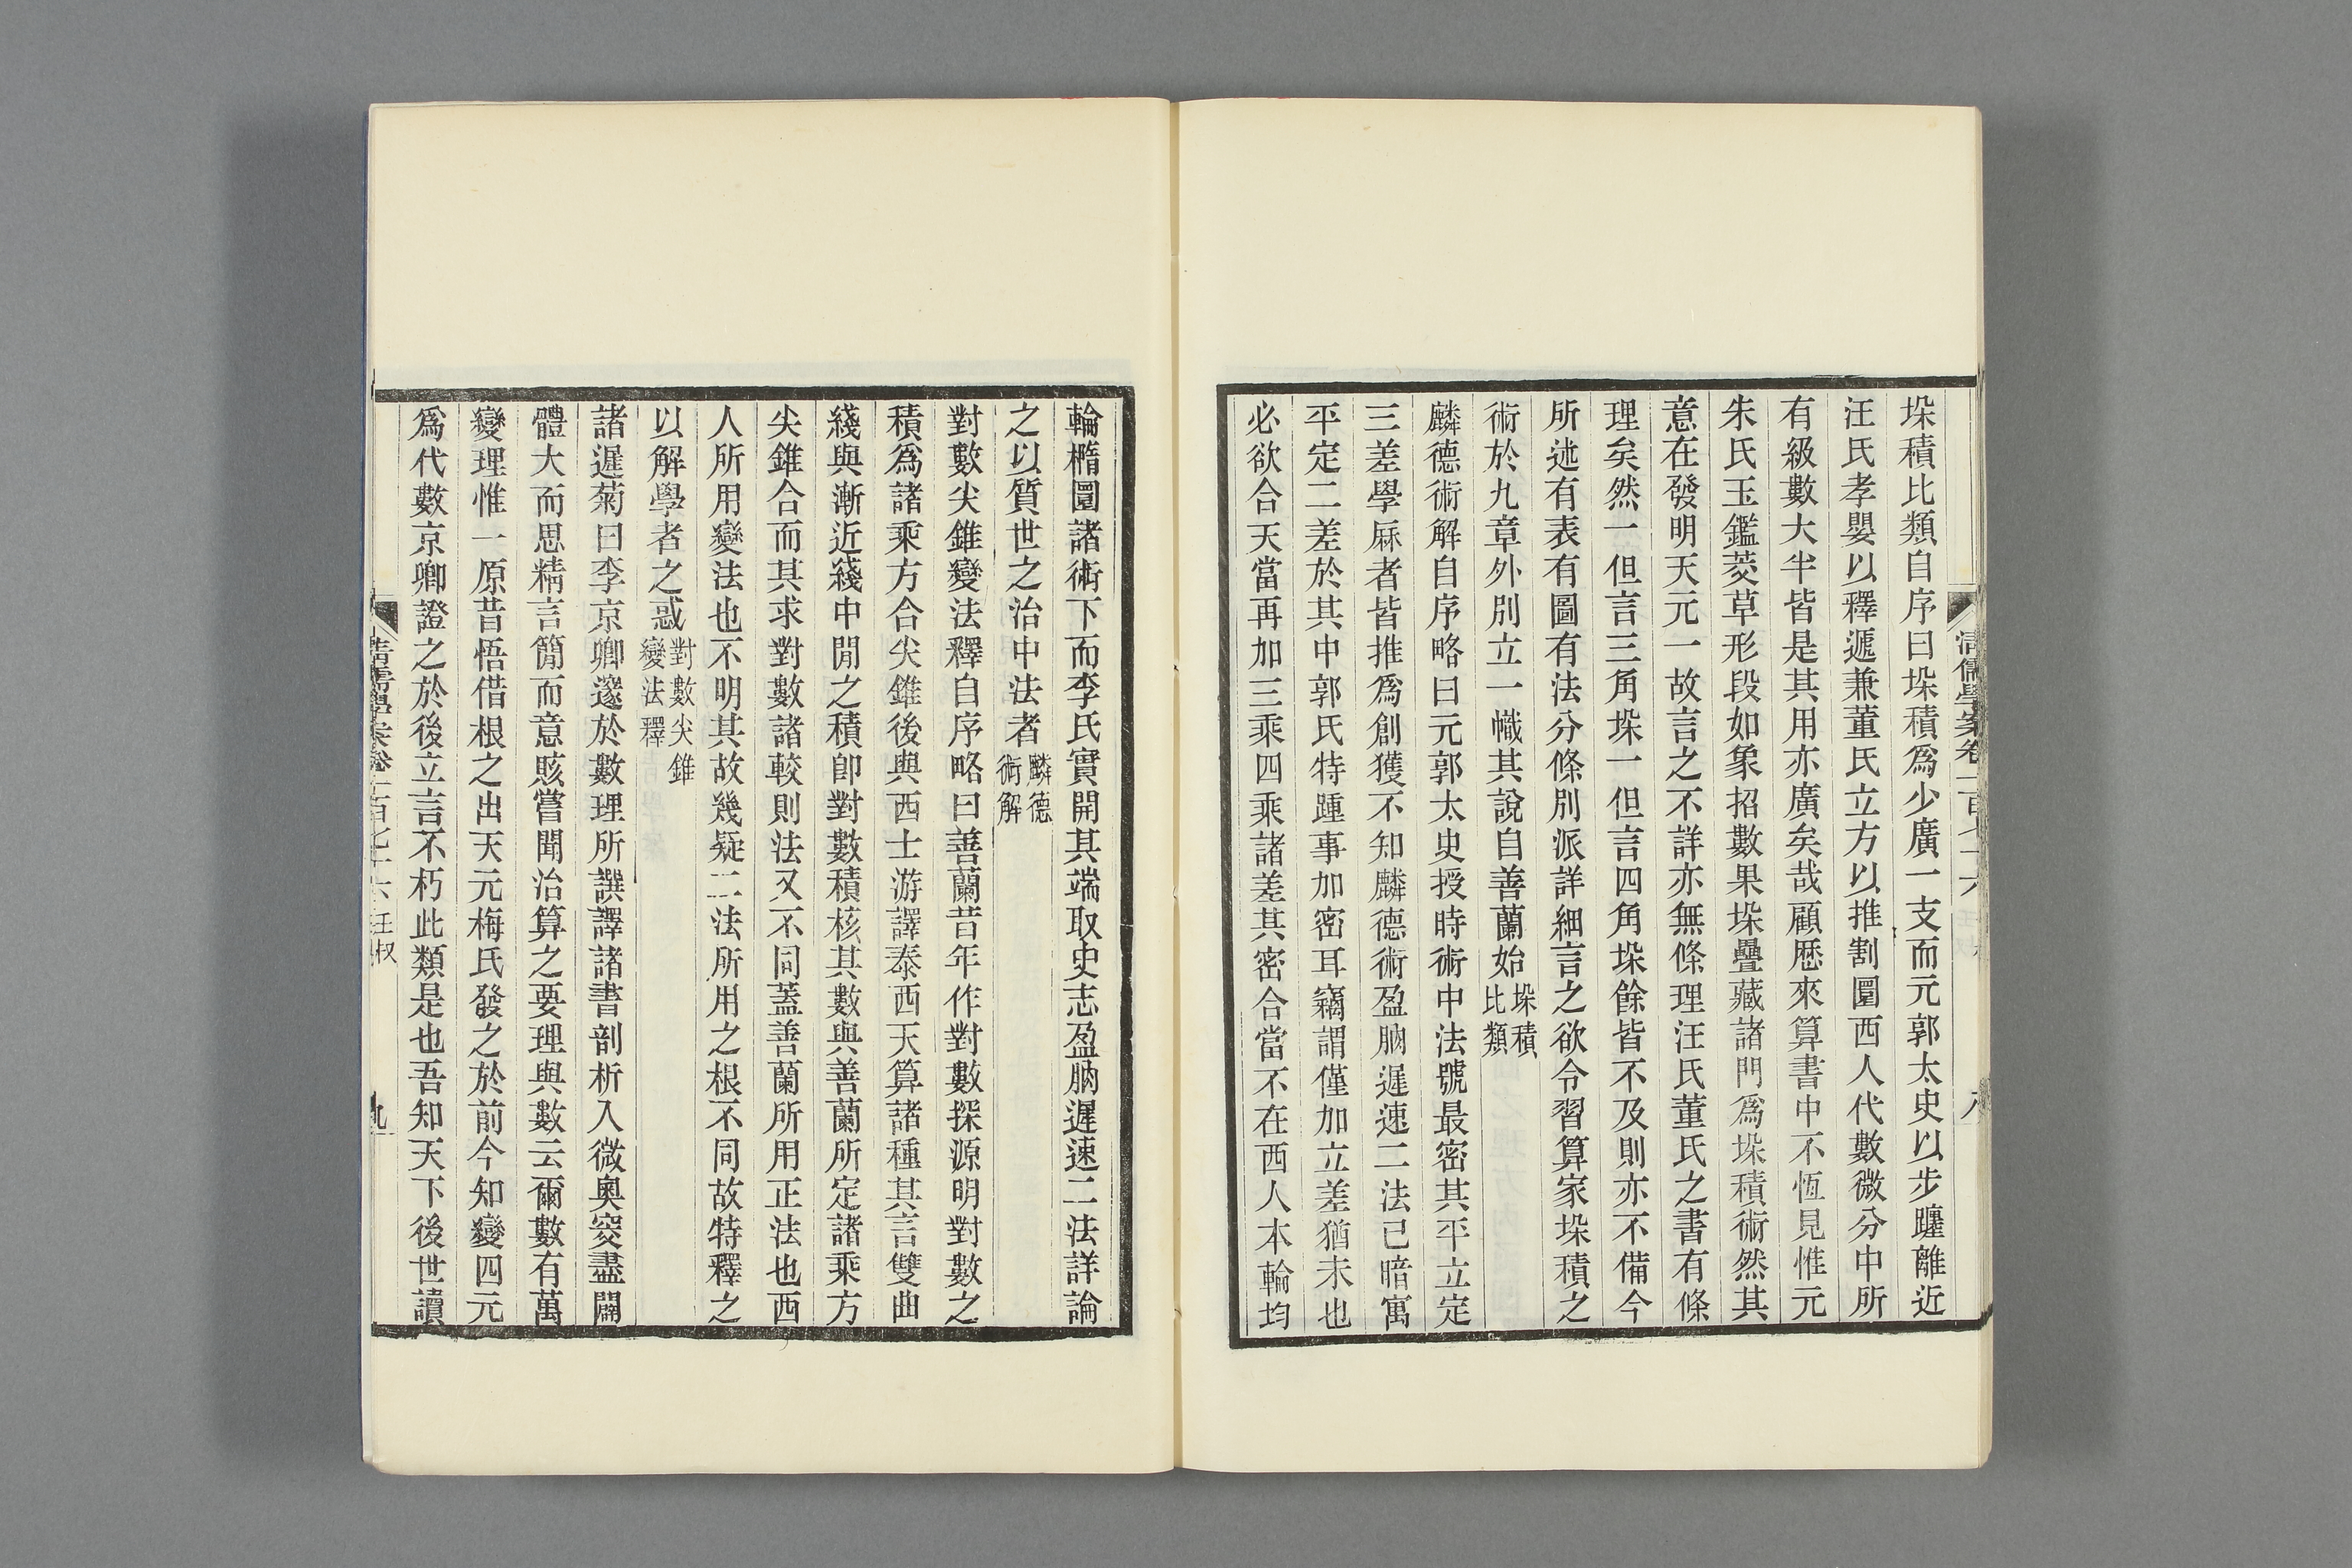 垛積比類自序曰垛積爲少廣一支而元郭太史以步躔離近
汪氏孝嬰以釋遞兼董氏立方以推割圜西人代數微分中所
有級數大半皆是其用亦廣矣哉顧厯來算書中不恆見惟元
朱氏玉鑑茭草形段如象招數果垛疊藏諸門爲垛積術然其
意在發明天元一故言之不詳亦無條理汪氏董氏之書有條
理矣然一但言三角垛一但言四角垛餘皆不及則亦不備今
所述有表有圖有法分條別派詳細言之欲令習算家垛積之
術於九章外別立一幟其說自善蘭始垛積比類
麟德術解自序略曰元郭太史授時術中法號最密其平立定
三差學厤者皆推爲創獲不知麟德術盈朒遲速二法已暗寓
平定二差於其中郭氏特踵事加密耳竊謂僅加立差猶未也
必欲合天當再加三乘四乘諸差其密合當不在西人本輪均
清儒學案卷一百七十六
八
輪橢圜諸術下而李氏實開其端取史志盈朒遲速二法詳論
之以質世之治中法者麟德術解
對數尖錐變法釋自序略曰善蘭昔年作對數探源明對數之
積爲諸乘方合尖錐後與西士游譯泰西天算諸種其言雙曲
綫與漸近綫中閒之積卽對數積核其數與善蘭所定諸乘方
尖錐合而其求對數諸較則法又不同蓋善蘭所用正法也西
人所用變法也不明其故幾疑二法所用之根不同故特釋之
以解學者之惑對數尖錐變法釋
諸遲菊曰李京卿邃於數理所譔譯諸書剖析入微奧窔盡闢
體大而思精言簡而意賅嘗聞治算之要理與數云爾數有萬
變理惟一原昔悟借根之出天元梅氏發之於前今知變四元
爲代數京卿證之於後立言不朽此類是也吾知天下後世讀
清儒學案卷一百七十六
九